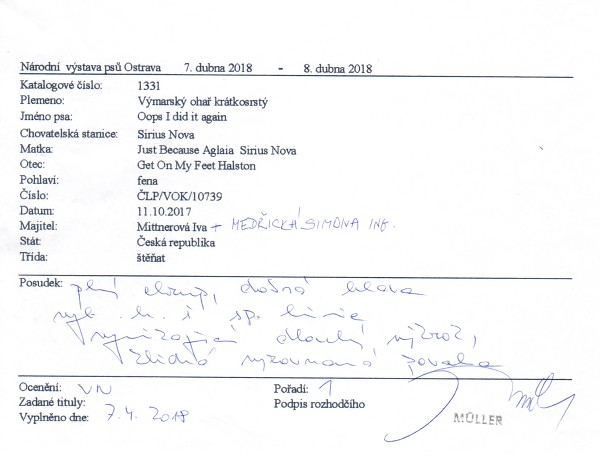 Národní výstava psů Ostrava 7. dubna 2018 - 8. dubna 2018
Katalogové číslo: 1331
Plemeno: Výmarský ohař krátkosrstý
Jméno psa: Oops I did it again
Chovatelská stanice: Sirius Nova
Matka: Just Because Aglaia Sirius Nova
Otec: Get On My Feet Halston
Pohlaví: fena
Číslo: ČLP/VOK/10739
Datum: 11.10.2017
Majitel: Mittnerová Iva + MEDŘICKÁ SIMONA ING.
Stát: Česká republika
Třída: štěňat
Posudek: plný chrup, dobrá hlava
h. i sp. linie
vynikající dlouhý
klidná vyrovnaná povaha
Ocenění: VN Pořadí: 1
Zadané tituly: Podpis rozhodčího
Vyplněno dne: 7.4. 2018 MÜLLER